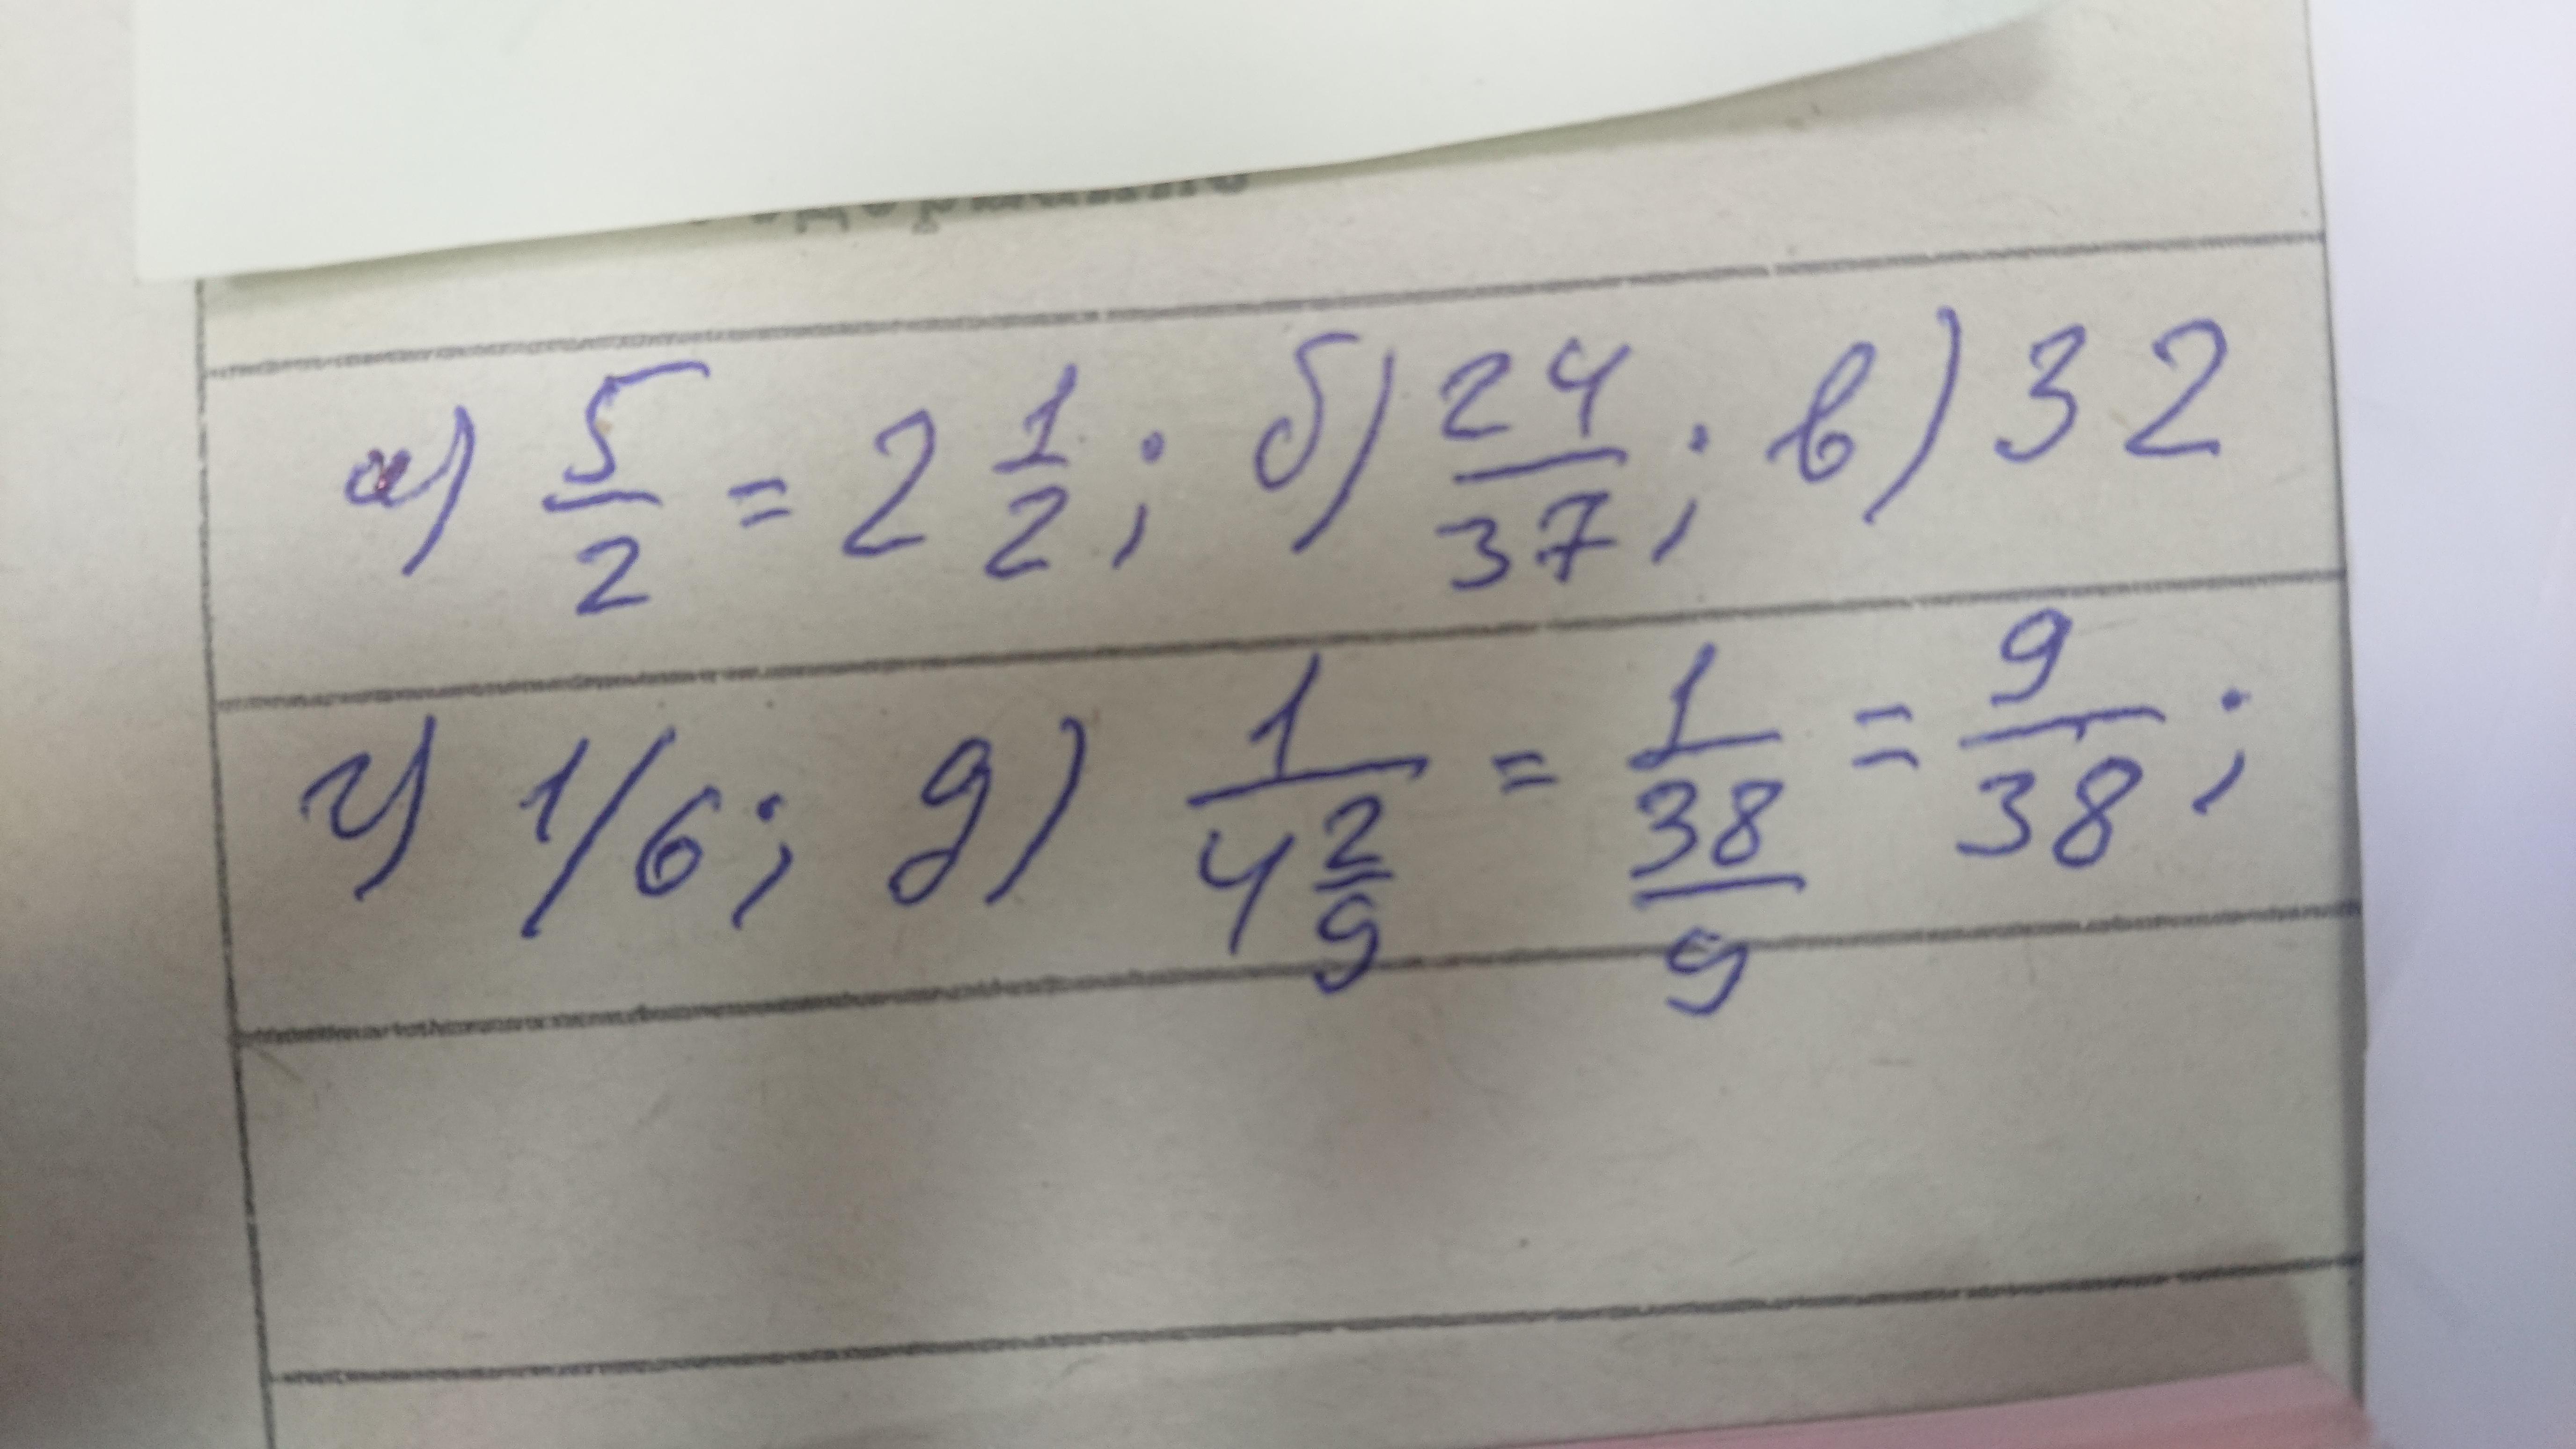 а) 5/2 = 2 1/2; б) 24/37; в) 32
г) 1/6; д) 1/(4 2/9) = 1/(38/9) = 9/38;